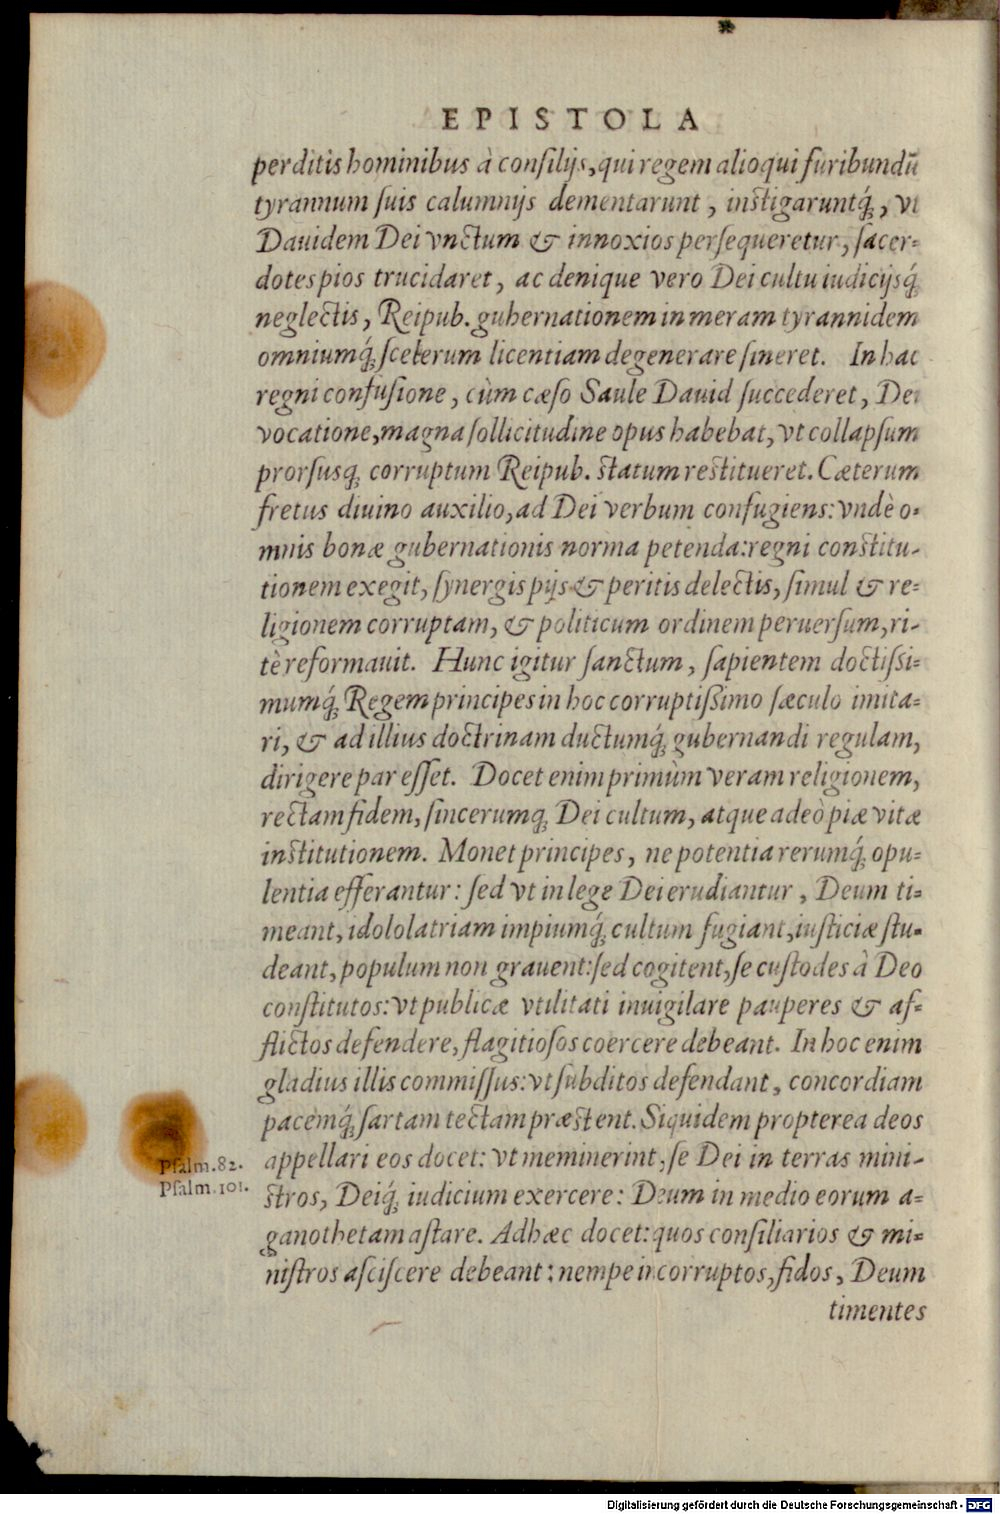 EPISTOLA
perditis hominibus à consilijs, qui regem alioqui furibundū
tyrannum suis calumnijs dementarunt, instigaruntq́;, vt
Dauidem Dei vnctum & innoxios persequeretur, sacer-
dotes pios trucidaret, ac denique vero Dei cultu iudicijsq́;
neglectis, Reipub. gubernationem in meram tyrannidem
omniumq́; scelerum licentiam degenerare sineret. In hac
regni confusione, cùm cæso Saule Dauid succederet, Dei
vocatione, magna sollicitudine opus habebat, vt collapsum
prorsusq; corruptum Reipub. statum restitueret. Cæterum
fretus diuino auxilio, ad Dei verbum confugiens: vndè o-
mnis bonæ gubernationis norma petenda: regni constitu-
tionem exegit, synergis pijs & peritis delectis, simul & re-
ligionem corruptam, & politicum ordinem peruersum, ri-
tè reformauit. Hunc igitur sanctum, sapientem doctissi-
mumq́; Regem principes in hoc corruptissimo sæculo imita-
ri, & ad illius doctrinam ductumq́; gubernandi regulam,
dirigere par esset. Docet enim primùm veram religionem,
rectam fidem, sincerumq; Dei cultum, atque adeò piæ vitæ
institutionem. Monet principes, ne potentia rerumq́; opu-
lentia efferantur: sed vt in lege Dei erudiantur, Deum ti-
meant, idololatriam impiumq́; cultum fugiant, iusticiæ stu-
deant, populum non grauent: sed cogitent, se custodes à Deo
constitutos: vt publicæ vtilitati inuigilare pauperes & af-
flictos defendere, flagitiosos coercere debeant. In hoc enim
gladius illis commissus: vt subditos defendant, concordiam
pacemq́; sartam tectam præstent. Siquidem propterea deos
Psalm. 82. appellari eos docet: vt meminerint, se Dei in terras mini-
Psalm. 101. stros, Deiq́; iudicium exercere: Deum in medio eorum a-
ganothetam astare. Adhæc docet: quos consiliarios & mi-
nistros asciscere debeant: nempe incorruptos, fidos, Deum
timentes
Digitalisierung gefördert durch die Deutsche Forschungsgemeinschaft - DFG